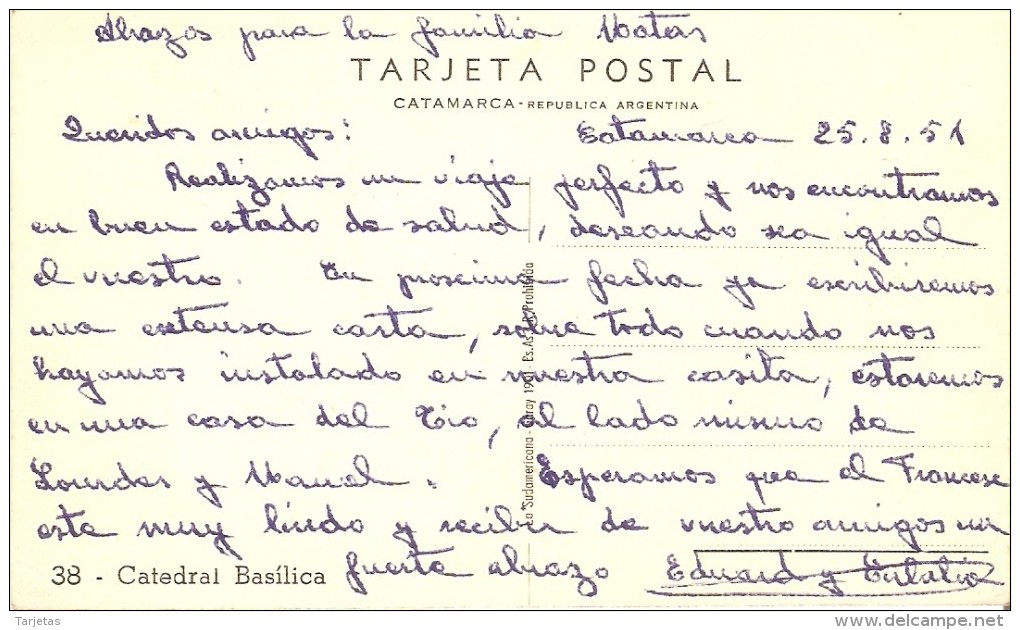 Abrazos para la familia Matas
TARJETA POSTAL
CATAMARCA - REPUBLICA ARGENTINA
Queridos amigos:
Catamarca 25.8.51
Realizamos un viaje perfecto y nos encontramos
en buen estado de salud, deseando sea igual
el vuestro. En proxima fecha ya escribiremos
una extensa carta, sobre todo cuando nos
hayamos instalado en nuestra casita, estaremos
en una casa del Tio, al lado mismo de
Lourdes y Manel. Esperamos que el Francese
este muy lindo y recibir de vuestro amigos un
fuerte abrazo Eduard y Eulalia
38 - Catedral Basílica
La Sudamericana - Garay - Bs.As. - R. Prohibida
Tarjetas
www.delcampe.net